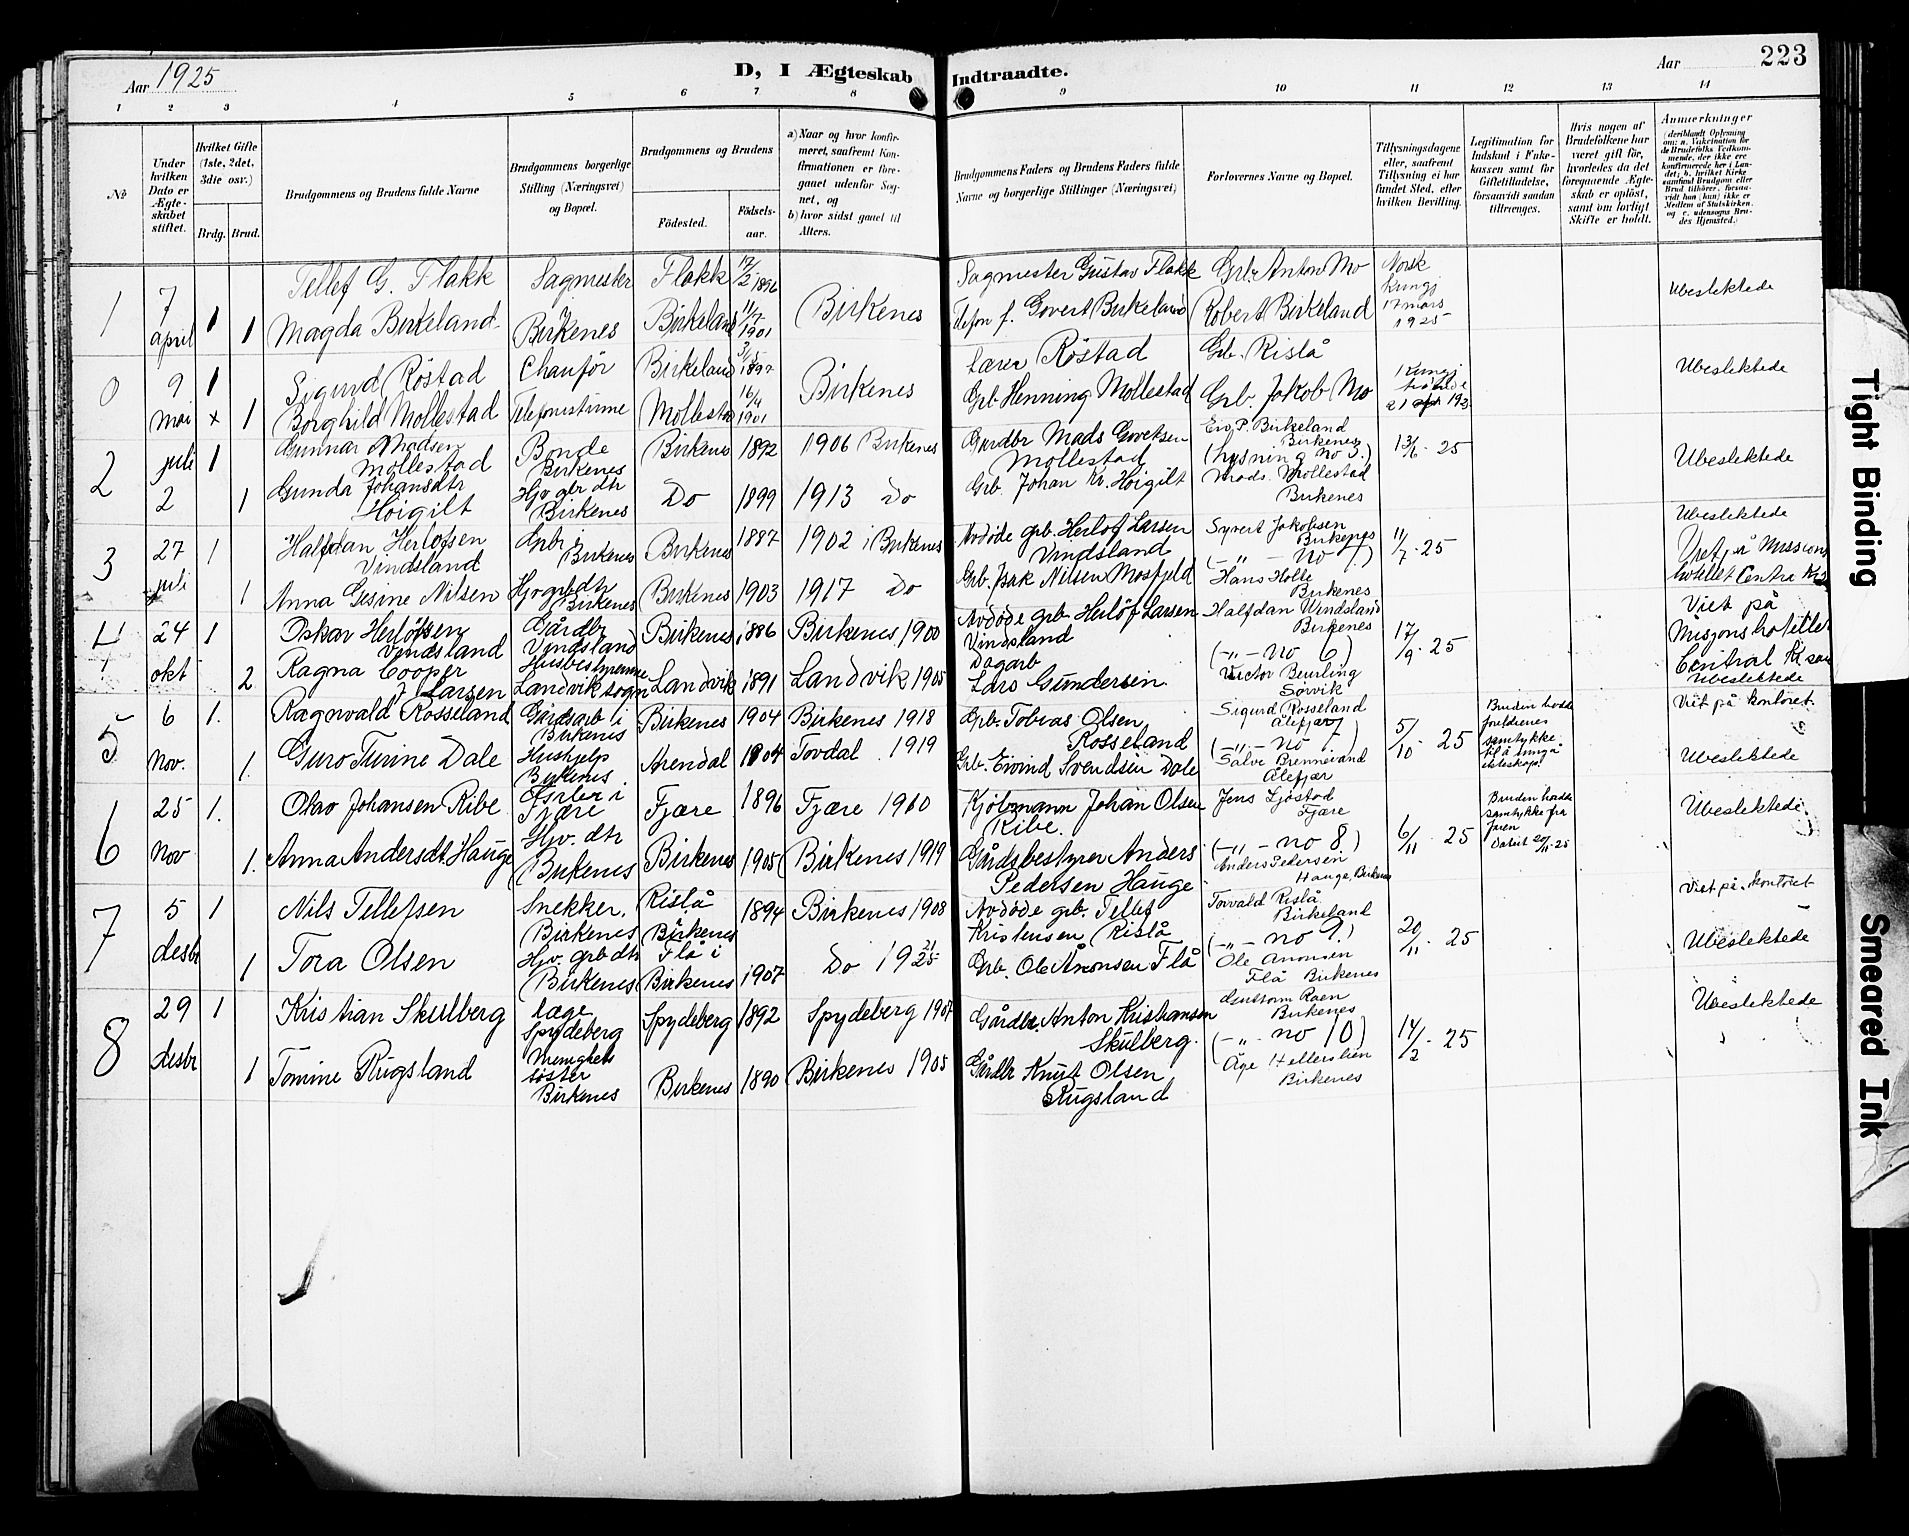 Aar 1925
D, I Ægteskab
Indtraadte.
Aar
223
1 2 3 4 5 6 7 8 9 10 11 12 13 14
No
Under hvilken Dato er Ægteskabet stiftet.
Hvilket Gifte (1ste, 2det, 3die osv.)
Brdg. Brud.
Brudgommens og Brudens fulde Navne
Brudgommens borgerlige Stilling (Næringsvei) og Bopæl.
Brudgommens og Brudens
Fødested.
Fødselsaar.
a) Naar og hvor konfirmeret, saafremt Konfirmationen er foregaaet udenfor Sognet, og
b) hvor sidst gaaet til Alters.
Brudgommens Faders og Brudens Faders fulde Navne og borgerlige Stillinger (Næringsvei)
Forlovernes Navne og Bopæl.
Tillysningsdagene eller, saafremt Tillysning ei har fundet Sted, efter hvilken Bevilling.
Legitimation for Indskud i Enkekassen samt for Giftetilladelse, forsaavidt saadan tiltrænges.
Hvis nogen af Brudefolkene har været gift før, hvorledes da det foregaaende Ægteskab er opløst, samt om lovligt Skifte er holdt.
Anmærkninger
(deriblandt Oplysning om: a. Vakcination for de Brudefolks Vedkommende, der ikke ere konfirmerede her i Landet; b. hvilket Kirkesamfund Brudgom eller Brud tilhører, forsaavidt han (hun) ikke er Medlem af Statskirken. og c. udensogns Brudes Hjemsted.)
1 7 april 1 Tellef G. Flakk Sagmester Flakk 17/2 1896 Birkenes Sagmester Gustav Flakk Grbr Anton Mo Norsk Kungj 17 mars 1925 Ubeslektede
1 Magda Birkeland Birkenes Birkeland 11/7 1901 Govert Birkeland Robert Birkeland
0 9 mai 1 Sigurd Röstad Chauför Birkeland Birkenes Lærer Röstad Grb. Rislå Ubeslektede
x 1 Borghild Mollestad Telefonistinne Mollestad 16/4 1901 Grb Henning Mollestad Grb. Jakob Mo
2 juli 2 1 Gunnar Madsen Mollestad Bonde Birkenes Birkenes 1892 1906 Birkenes Gardbr Mads Govertsen Mollestad P. Birkeland Birkenes (Lysning No 3.) 13/6 - 25 Ubeslektede
1 Gunda Johansdtr Höigilt Hjv gbr dtr Birkenes Do 1899 1913 Do Grb. Johan Kr. Höigilt Mads Mollestad Birkenes
3 27 juli 1 Halfdan Herlofsen Vindsland Grb i Birkenes Birkenes 1887 1902 i Birkenes Avdöde grb. Herlof Larsen Vindsland Syvert Jakobsen Birkenes 11/7 - 25 Ubeslektede
1 Anna Gesine Nilsen Hjv grb dtr Birkenes Birkenes 1903 1917 Do Grb. Isak Nilsen Mosfjeld Hans Holte Birkenes Viet på Missions hotellet Centra
4 24 okt 1 Oskar Herlofsen Vindsland Gårdbr Vindsland Birkenes 1886 Birkenes 1900 Avdöde grb Herlöf Larsen Vindsland Halfdan Vindsland Birkenes (-"- No 6) 17/9 - 25 Viet på Misjonshotellet Central
2 Ragna Cooper f Larsen Husbestyrerinne Landvik sogn Landvik 1891 Landvik 1905 Dagarb Lars Gundersen Victor Beurling Sörvik Ubeslektede
5 6 Nov. 1. Ragnvald Rosseland Gårdsarb i Birkenes Birkenes 1904 Birkenes 1918 Grb. Tobias Olsen Rosseland Sigurd Rosseland Ålefjær (-"- No 7) 5/10 - 25 Bruden hadde foreldrenes samtykke til å inngå ekteskap. Viet på kontoret
1. Guro Turine Dale Hushjelp Birkenes Arendal 1904 Tovdal 1919 Grb. Eivind Svendsen Dale Salve Brennevand Ålefjær Ubeslektede
6 25 Nov 1. Olav Johansen Ribe Fjære Fjære 1896 Fjære 1910 Kjöbmann Johan Olsen Ribe. Jens Sjöstad Fjære (-"- no 8) 6/11 - 25 Bruden hadde samtykke fra faren Datert 20/11-25 Ubeslektede
1. Anna Andersdtr Hauge Hjv. dtr Birkenes Birkenes 1905 Birkenes 1919 Gårdsbestyrer Anders Pedersen Hauge Anders Pedersen Hauge, Birkenes
7 5 desbr 1 Nils Tellefsen Snekker. Birkenes Rislå Birkenes 1894 Birkenes 1908 Avdöde grb. Tellef Kristensen Rislå Torvald Rislå Birkeland (-"- no 9.) 20/11 - 25 Viet på kontoret
1 Tora Olsen Hjv. grb dtr Birkenes Flå i Birkenes 1907 Do Grb. Ole Aanonsen Flå Ole Anonsen Flå Birkenes Ubeslektede
8 29 desbr 1 Kristian Skulberg læge Spydeberg Spydeberg 1892 Spydeberg 1907 Gårdbr. Anton Kristiansen Skulberg. Roen Birkenes (-"- no 10) 14/2 - 25 Ubeslektede
1 Tomine Rugsland Menighetssöster Birkenes Birkenes 1890 Birkenes 1905 Gårdbr Knut Olsen Rugsland Åge Hellerslien Birkenes
Tight Binding
Smeared Ink